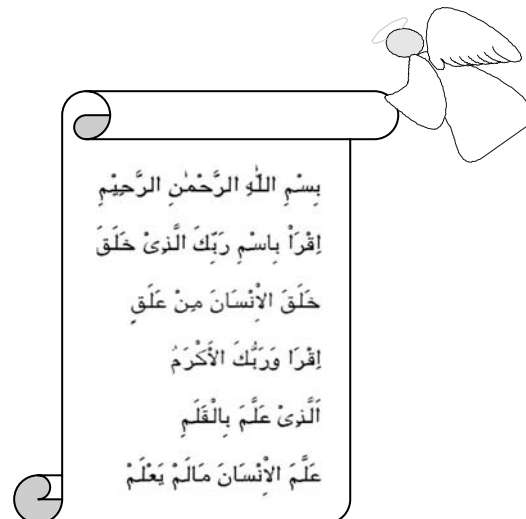 بِسْمِ اللّٰهِ الرَّحْمٰنِ الرَّحِيْمِ
اِقْرَاْ بِاسْمِ رَبِّكَ الَّذِىْ خَلَقَ
خَلَقَ الْاِنْسَانَ مِنْ عَلَقٍ
اِقْرَا وَرَبُّكَ الْأَكْرَمُ
اَلَّذِىْ عَلَّمَ بِالْقَلَمِ
عَلَّمَ الْاِنْسَانَ مَالَمْ يَعْلَمْ